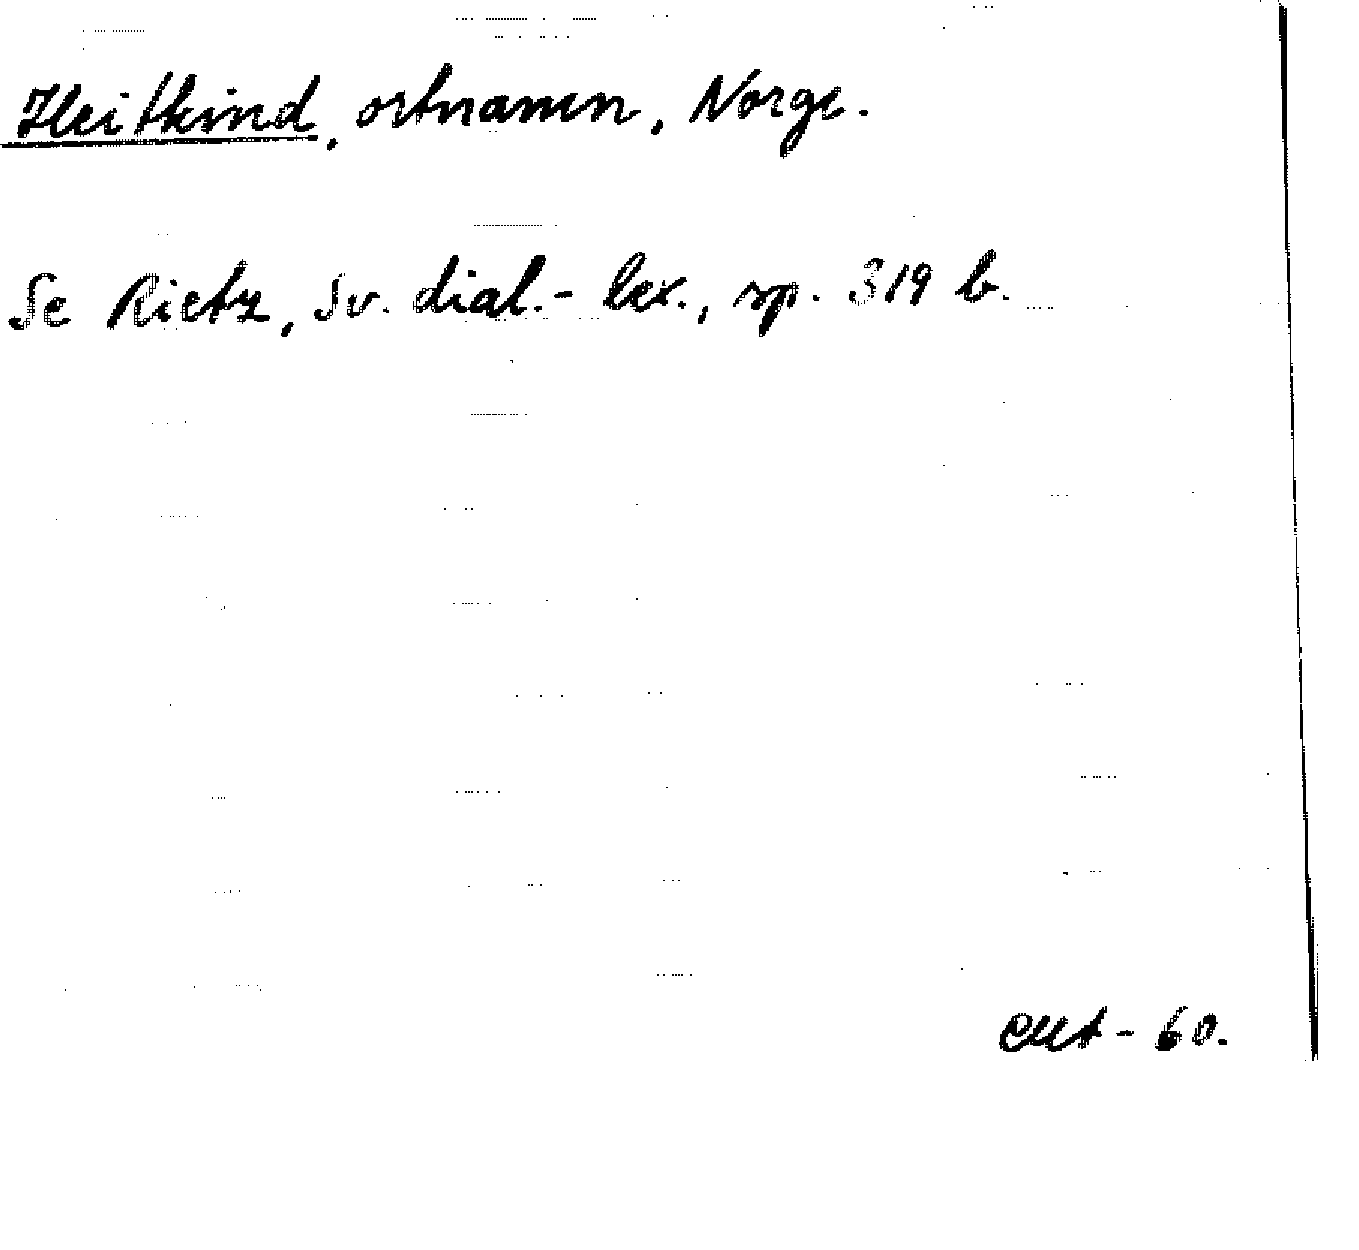 Heitkind, ortnamn, Norge.
Se Rietz, Sv. dial.-lex., sp. 319 b.
60.